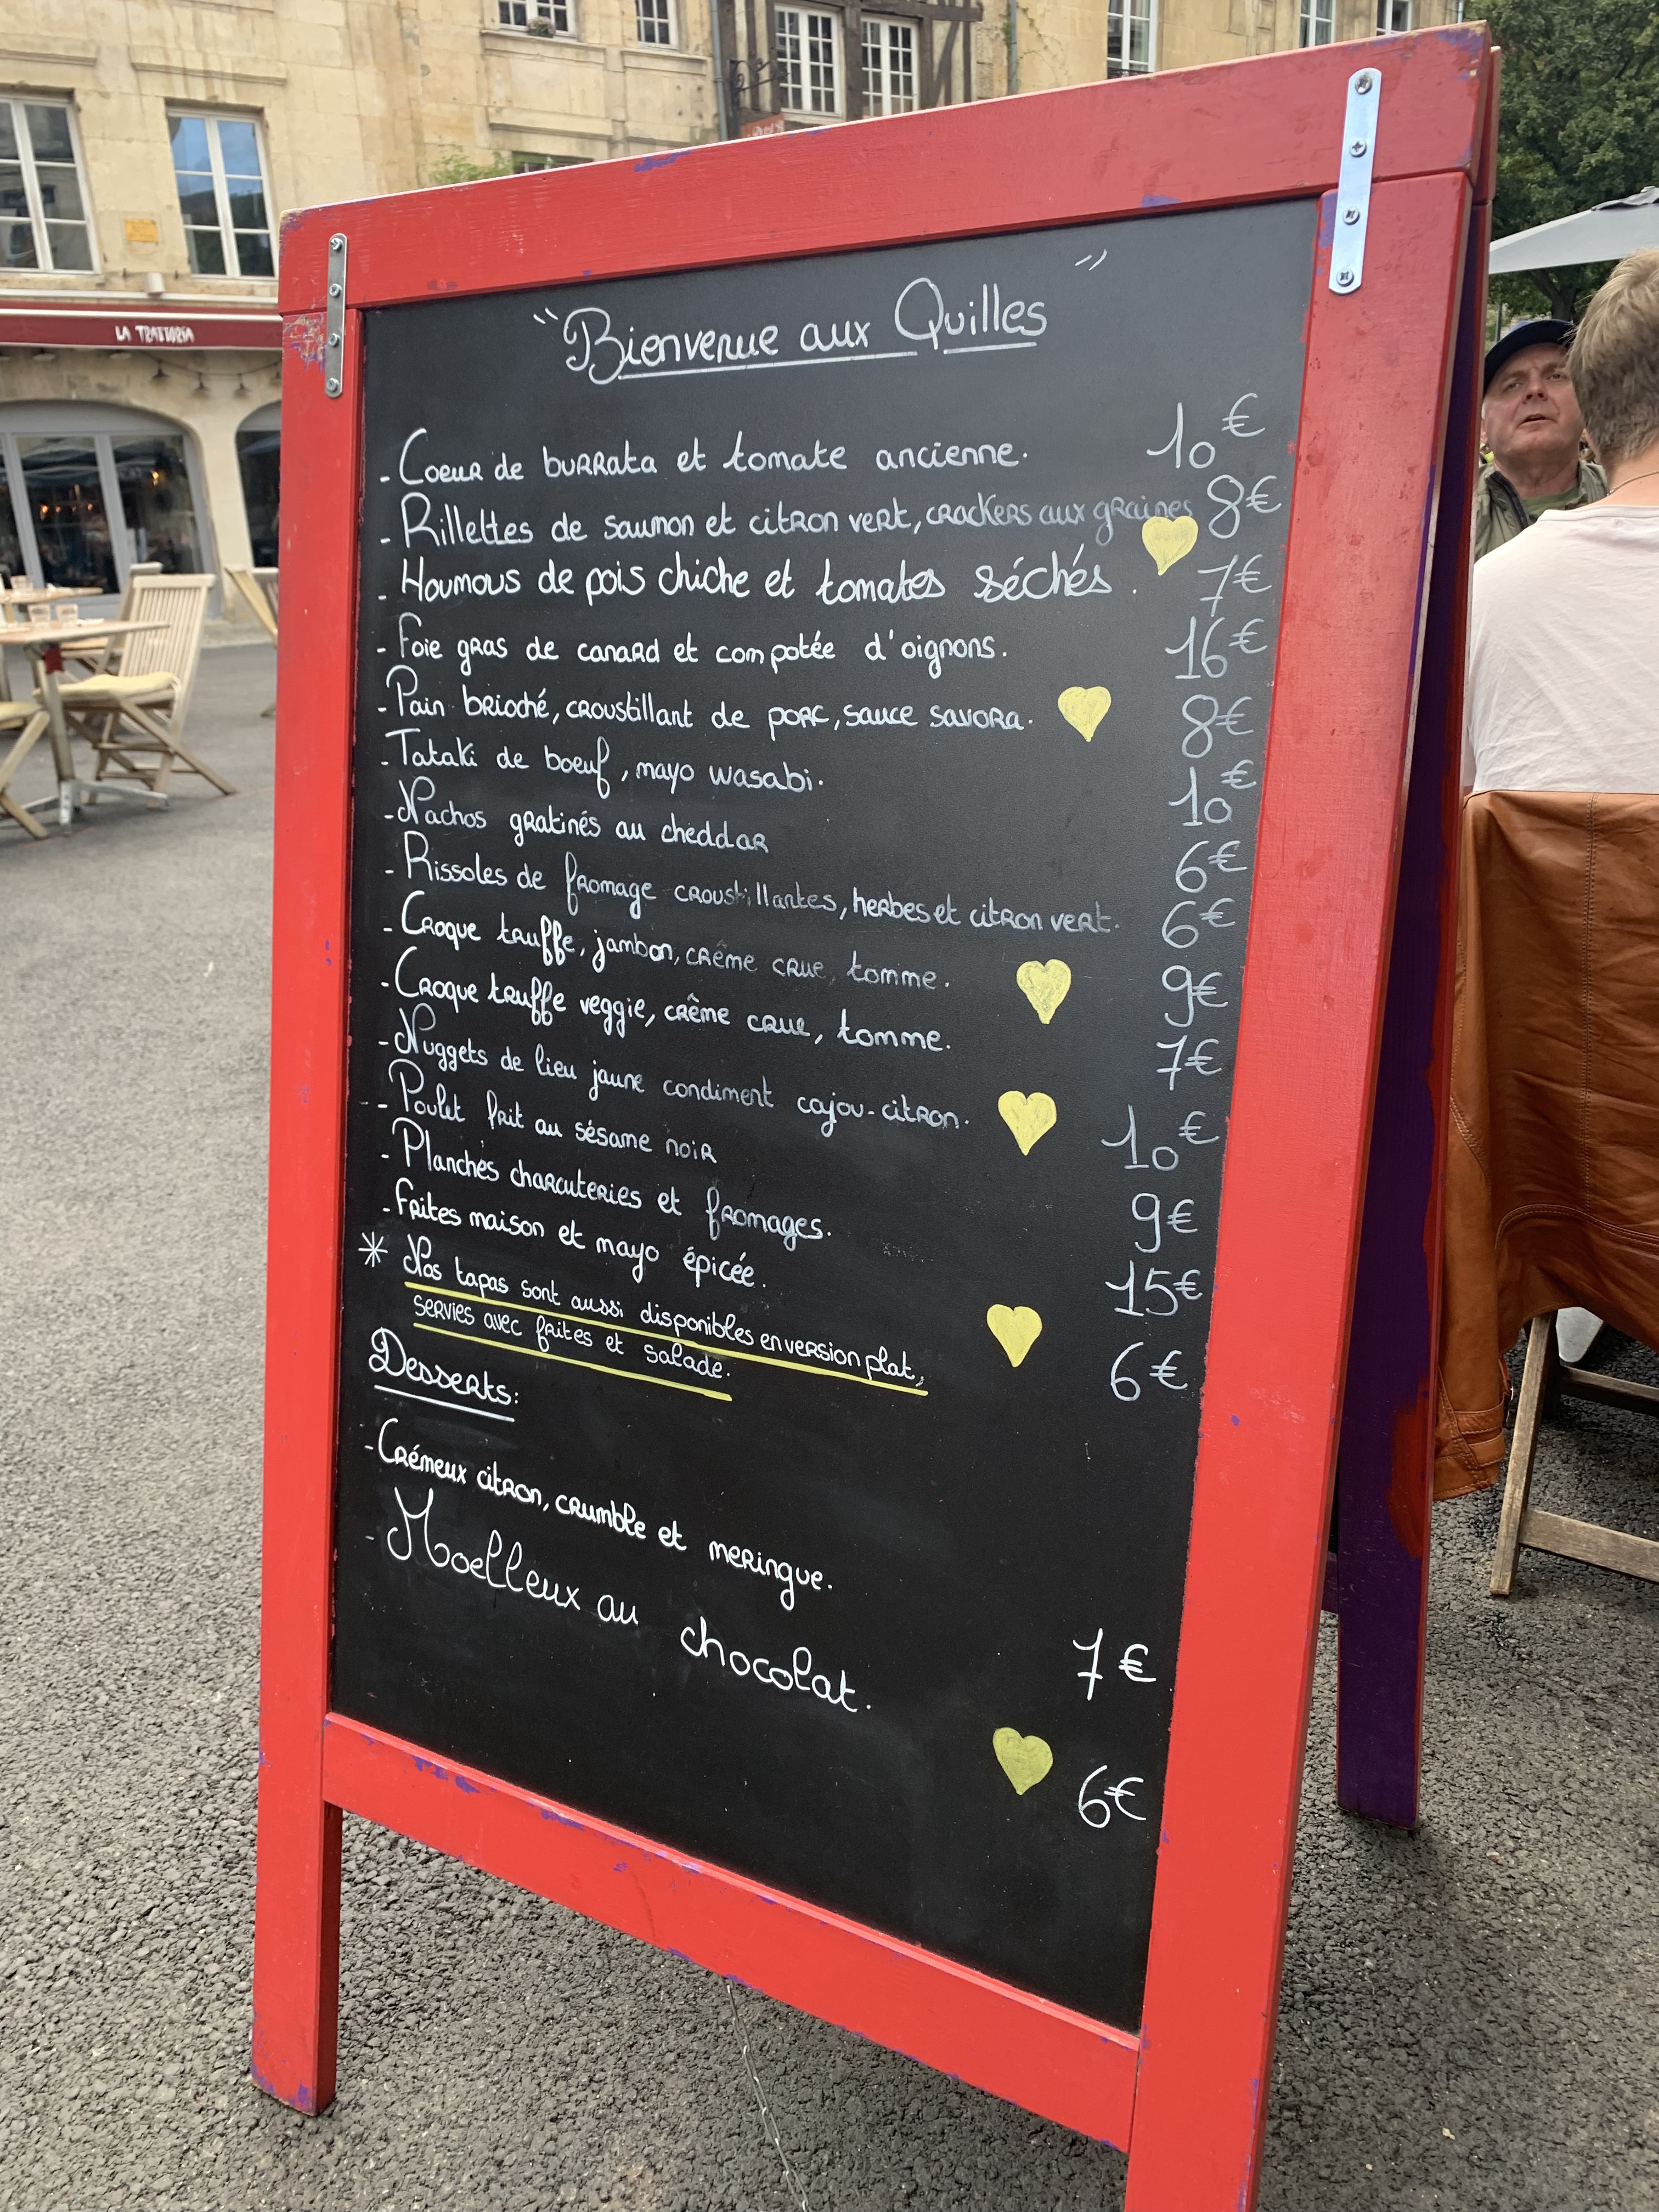 LA TRATTORIA
"Bienvenue aux Quilles"
- Coeur de burrata et tomate ancienne. 10€
- Rillettes de saumon et citron vert, crackers aux graines 8€
- Houmous de pois chiche et tomates séchés. 7€
- Foie gras de canard et compotée d'oignons. 16€
- Pain brioché, croustillant de porc, sauce savora. 8€
- Tataki de boeuf, mayo wasabi. 10€
- Nachos gratinés au cheddar 6€
- Rissoles de fromage croustillantes, herbes et citron vert. 6€
- Croque truffe, jambon, crême crue, tomme. 9€
- Croque truffe veggie, crême crue, tomme. 7€
- Nuggets de lieu jaune condiment cajou-citron. 10€
- Poulet frit au sésame noir 9€
- Planches charcuteries et fromages. 15€
- Frites maison et mayo épicée. 6€
* Nos tapas sont aussi disponibles en version plat,
servies avec frites et salade.
Desserts:
- Crémeux citron, crumble et meringue. 7€
- Moelleux au chocolat. 6€